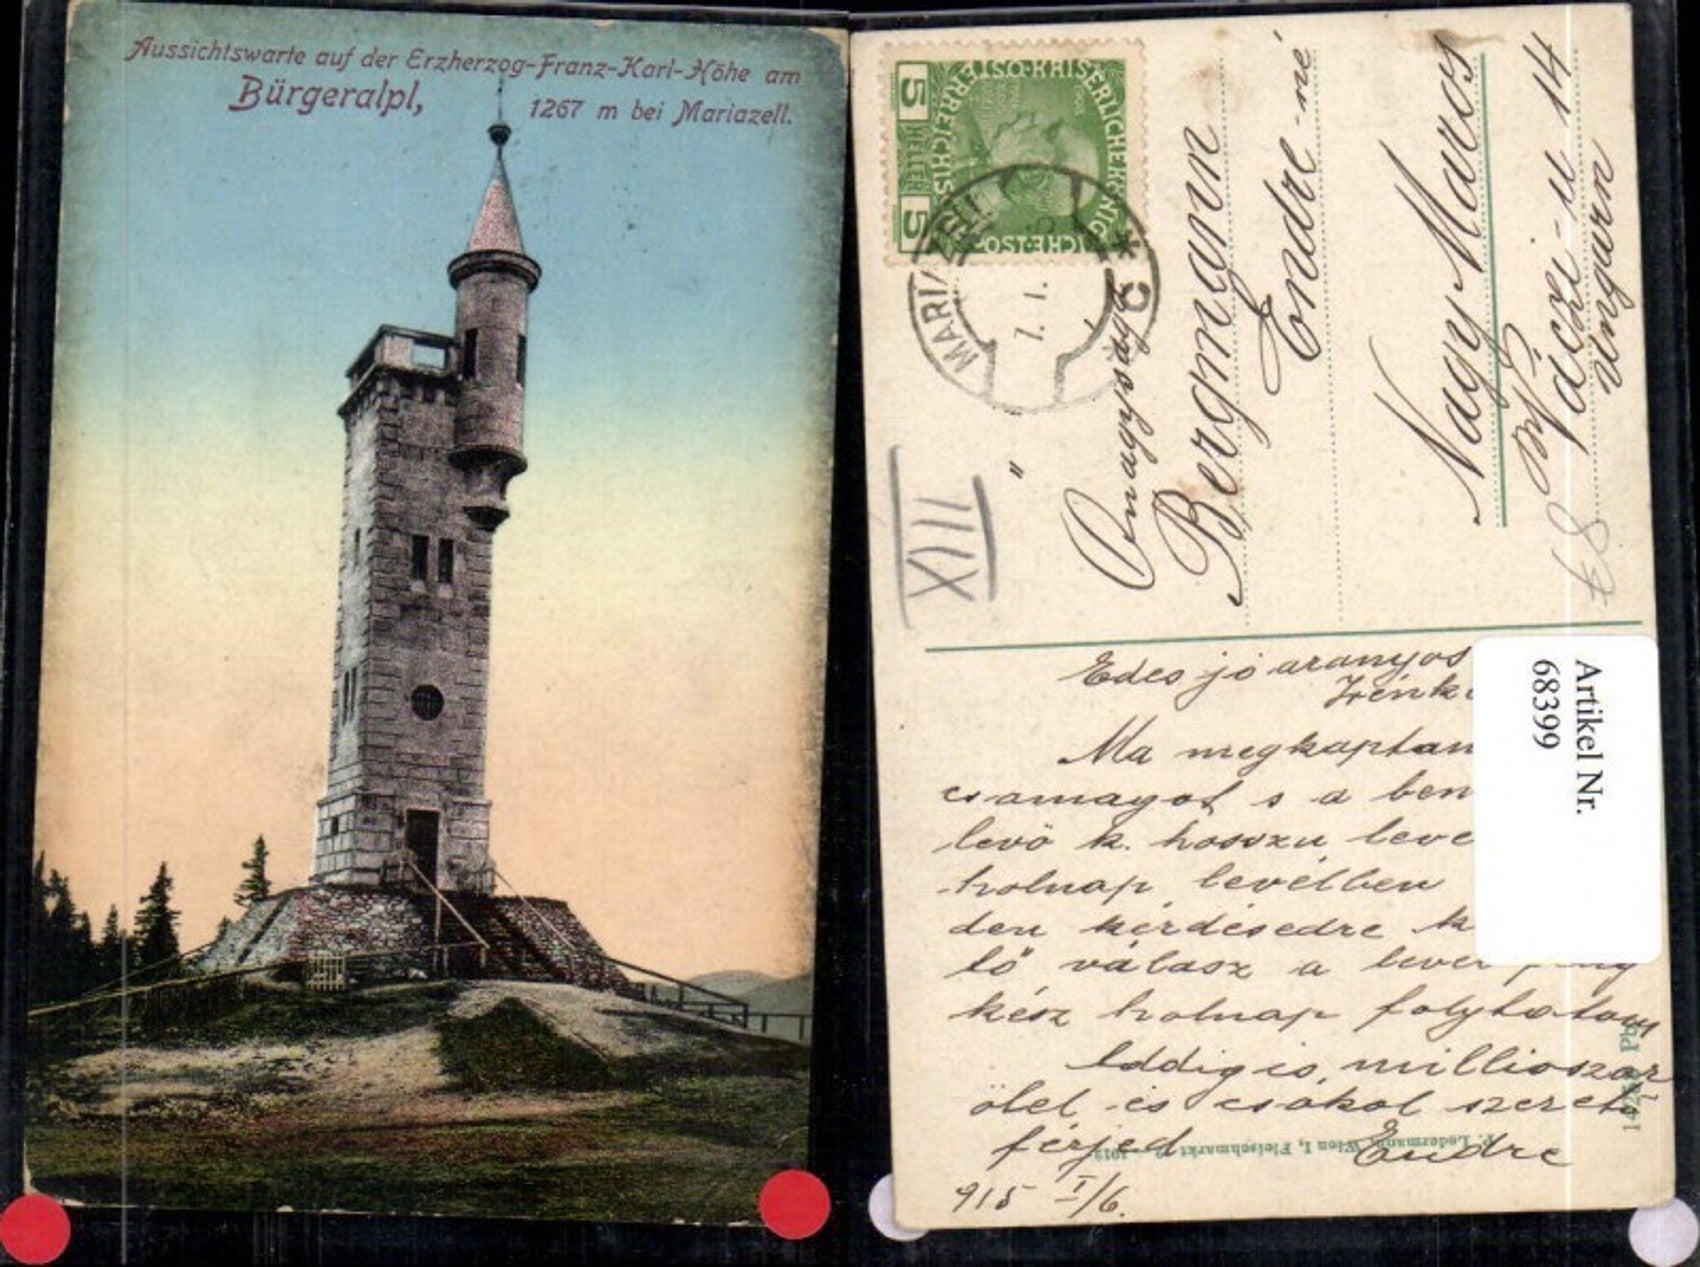 Aussichtswarte auf der Erzherzog-Franz-Karl-Höhe am
Bürgeralpl, 1267 m bei Mariazell.
5 HELLER 5
MARIAZELL
7. I.
* c
XIII
"
Önagysága
Bergmann
Endre-né
Nagy-Maros
Váczi-u 14
Ungarn
Edes jó aranyos
Ma megkaptam
csomagot s a ben
levö k. hosszu leve
holnap levélben
den kérdésedre k
lő válasz a
kész holnap folytatom
Addig is, milliószor
ölel és csókol szerető
férjed Endre
915 I/6.
P. Ledermann, Wien I, Fleischmarkt
Artikel Nr.
68399